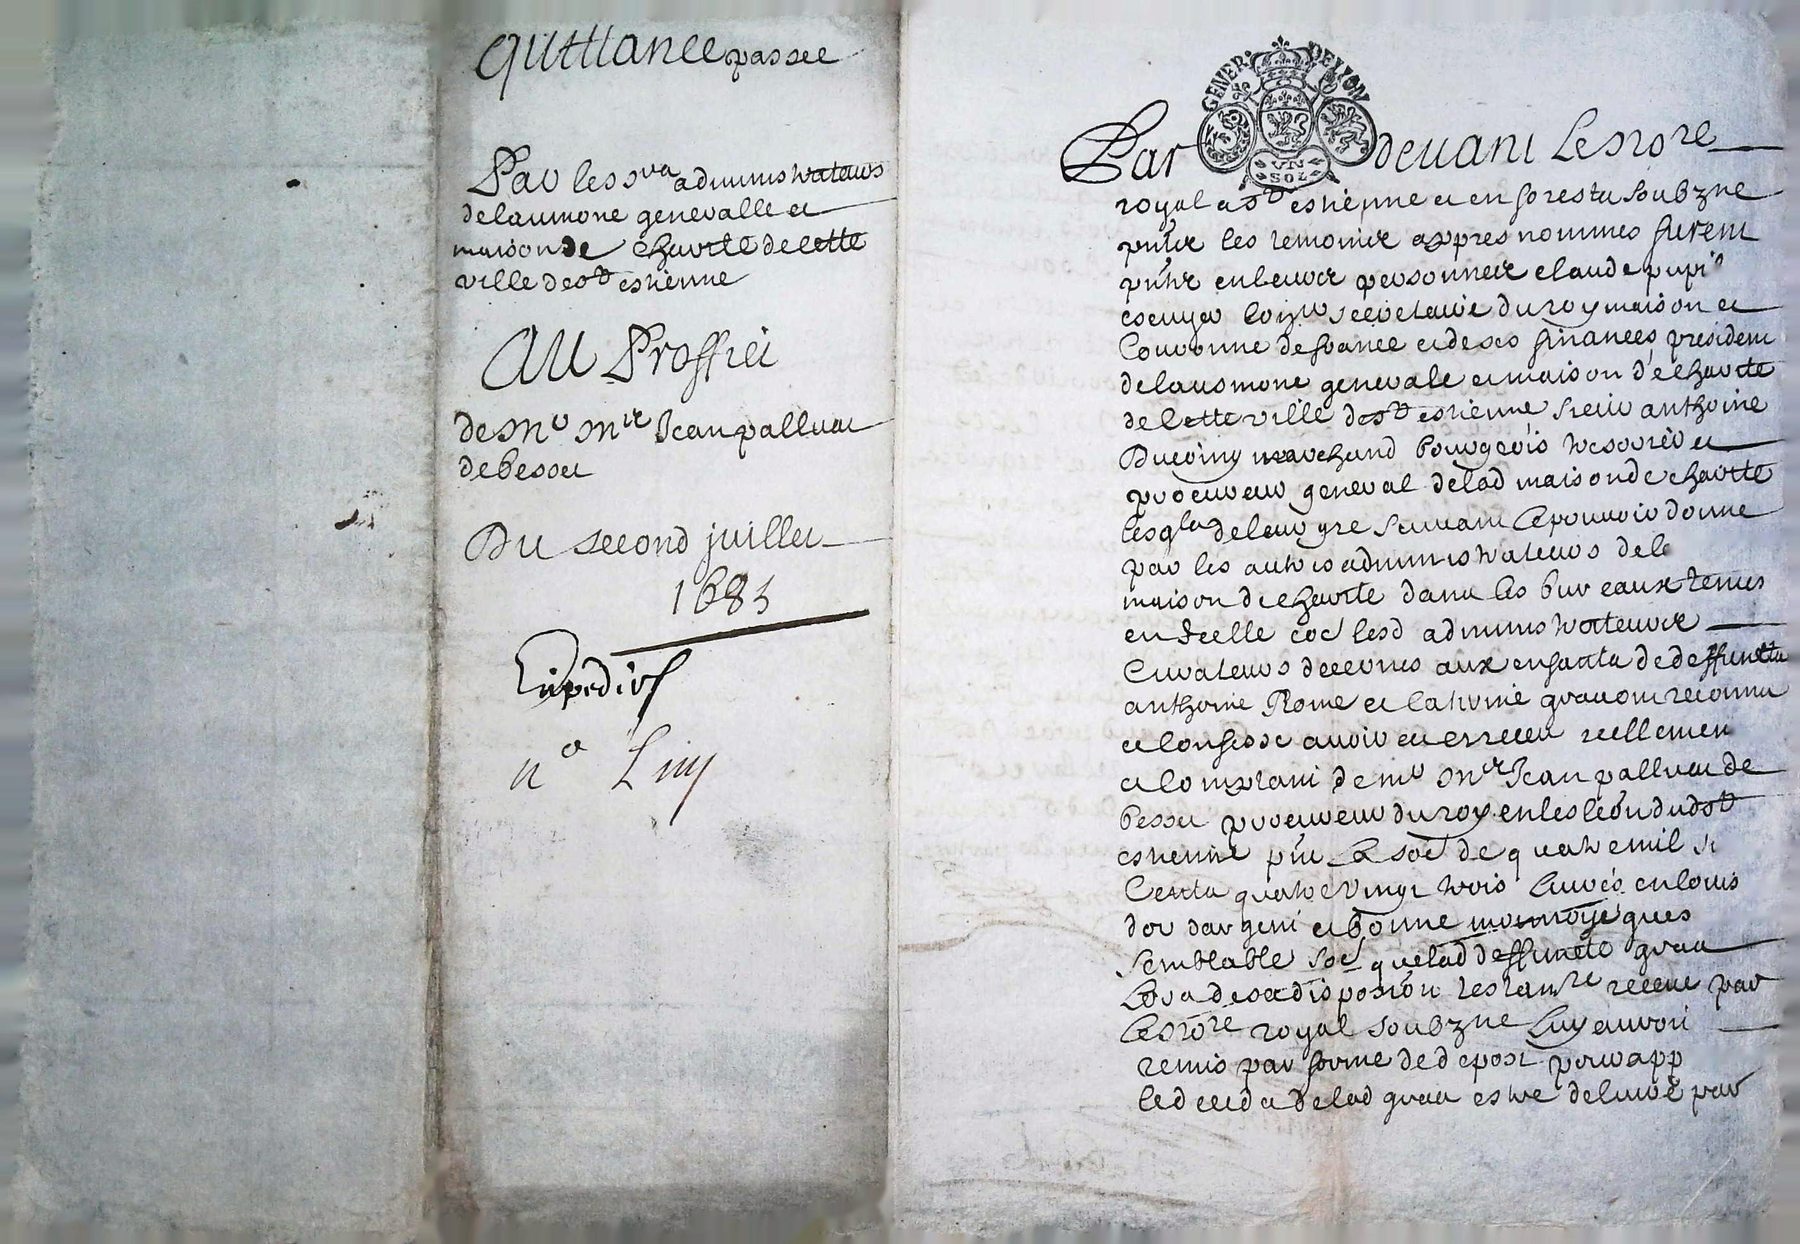 Quittance passee
Par les srs administrateurs
de laumone generalle et
maison de charite de cette
ville de st estienne
Au Proffict
de Me Mre Jean palluat
de besset
Du second juillet
1683
Expedies
n° Liiij
GENER DE LYON
UN
SOL
Par devant le nore
royal a st estienne et en forest a soubzne
pnt les temoins appres nommes furent
pnts en leurs personnes claude pupil
escuyer secretaire du roy maison et
Couronne de france et de ses finances president
de lausmone generale et maison de charite
de cette ville de st estienne sieur anthoine
Ducoing marchand bourgeois tresorier et
procureur general de lad maison de charite
lesqls de leur gre suivant le pouvoir donne
par les autres administrateurs de la
maison de charite dans les bureaux tenus
en icelle coe lesd administrateurs
Curateurs decernes aux enfants de deffuncts
anthoine Rome et Catherine gravon reconnu
et confesse avoir eu et receu reellement
et comptant de me Mre Jean palluat de
besset procureur du roy en leslection dud st
estienne pnt la soe de quatre mil six
Cents quatre vingt trois livres en louis
dor dargent et bonne monnoye
semblable soe que lad deffuncte
lors de sa disposition receue par
le nore royal soubzne luy avoit
remis par forme de depost pour app
le deced de lad estre delivre par